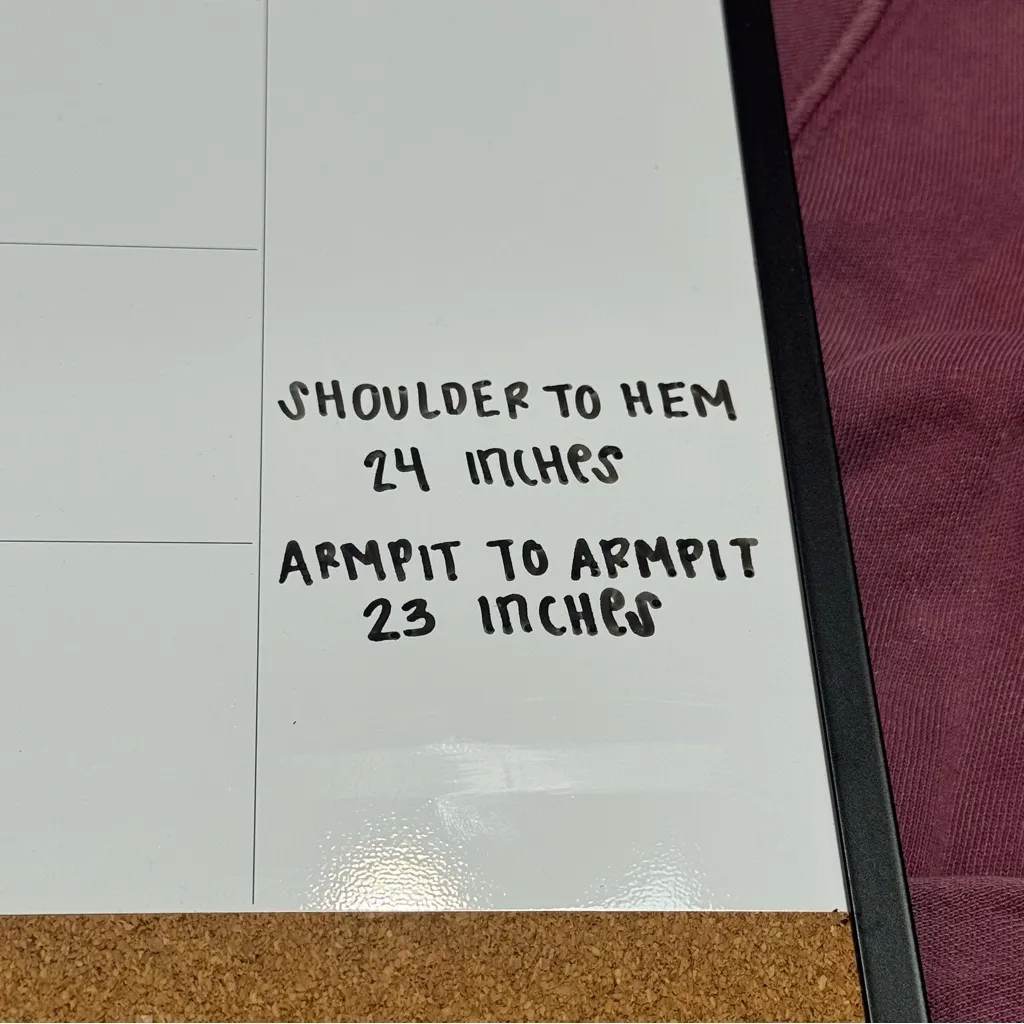 SHOULDER TO HEM
24 INCHES
ARMPIT TO ARMPIT
23 INCHES